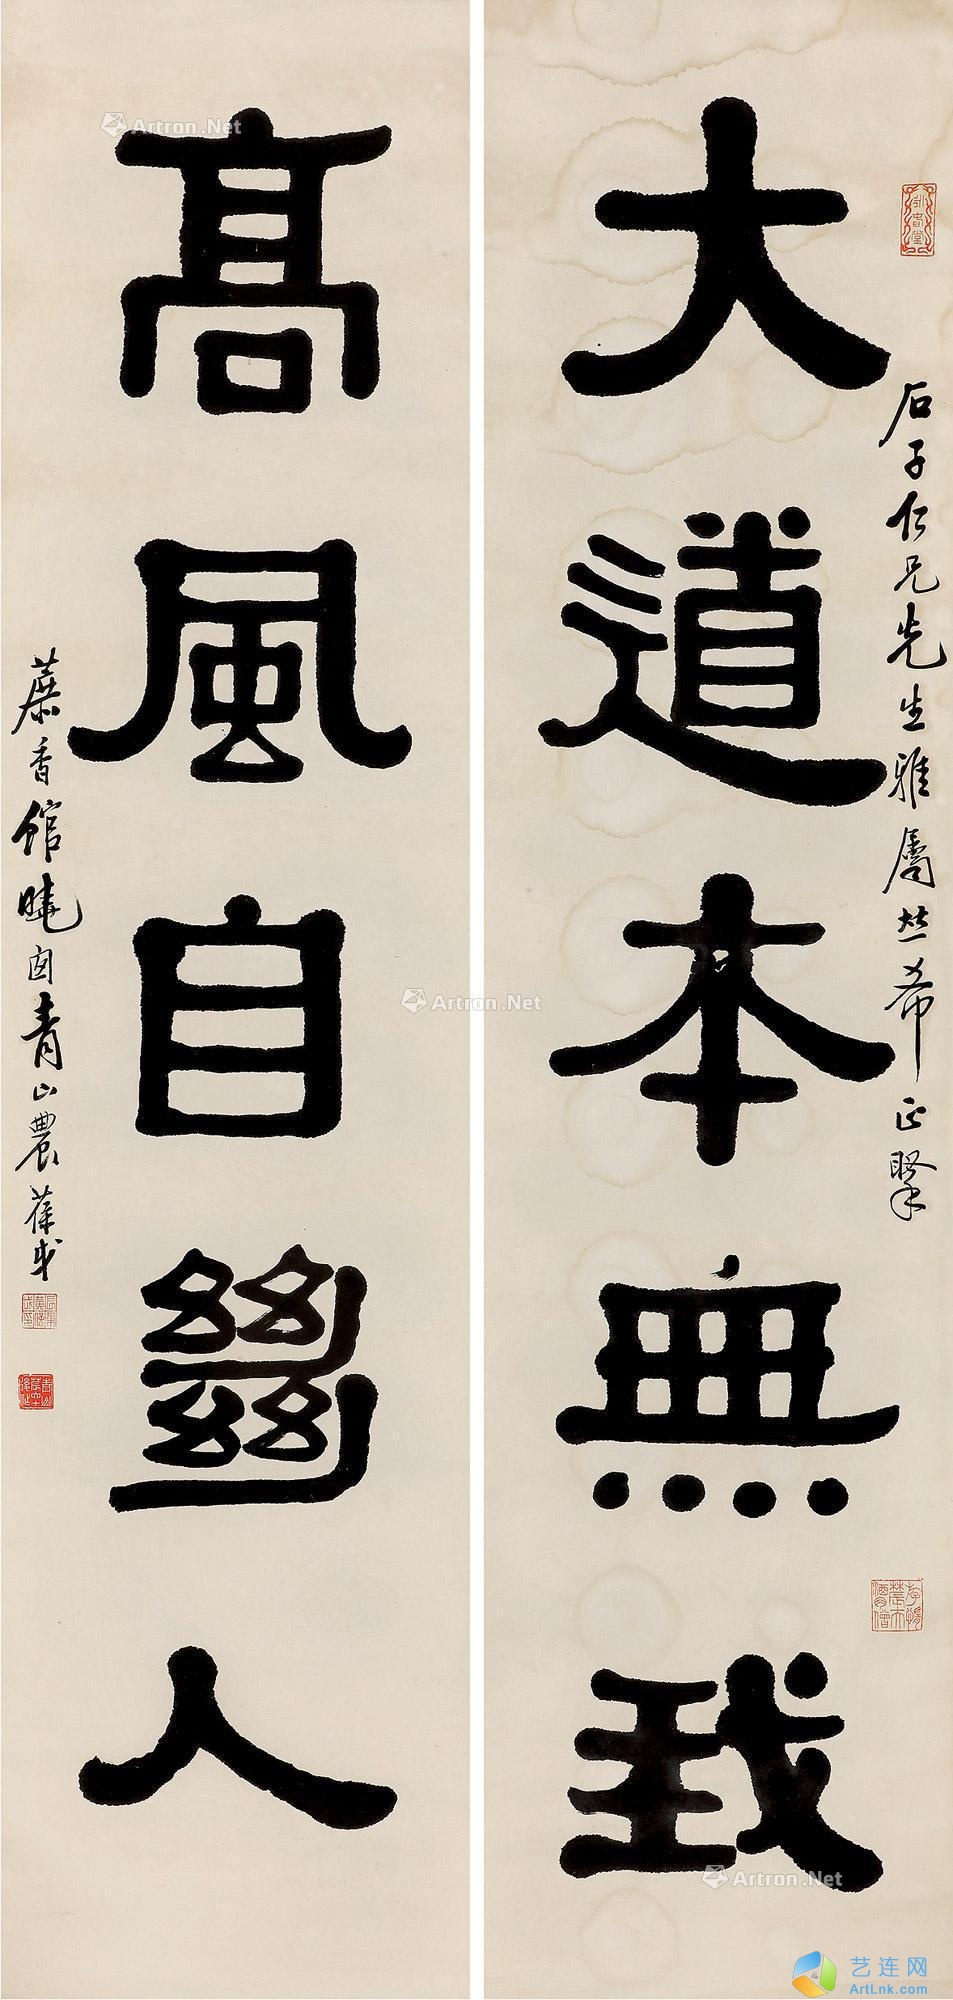 大道本無我
石子仁兄先生雅屬並希正
高風自𢇍人
蔗香館曉囱青山農葆戉
Artron.Net
Artron.Net
Artron.Net
艺连网
ArtLnk.com